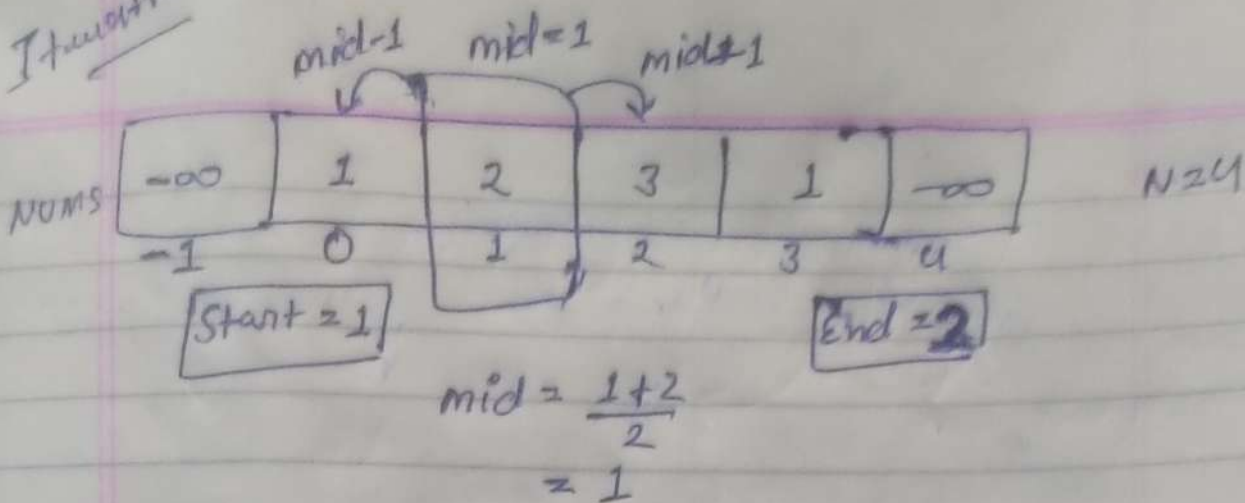 mid-1 mid=1 mid+1
NUMS -∞ 1 2 3 1 -∞ N=4
-1 0 1 2 3 4
Start = 1 End = 2
mid = 1+2
2
= 1